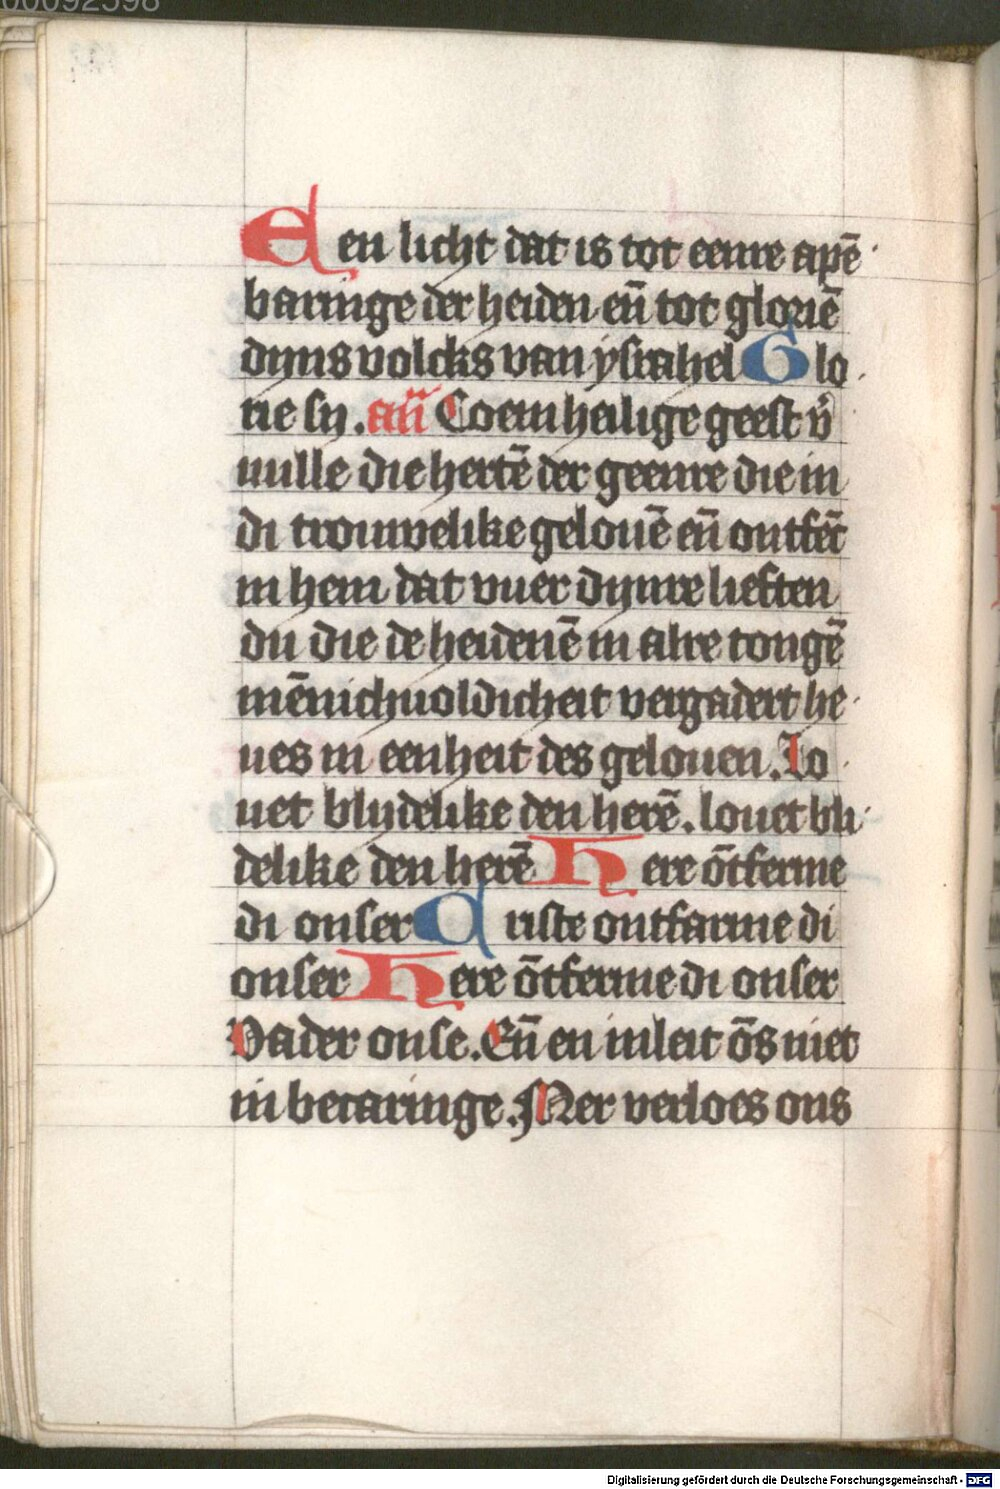 00092598
Een licht dat is tot eenre apē
baringe der heiden eñ tot gloriē
dyns volcks van ysrahel Glo
rie sy. añ Coem heilige geest v̄
uulle die hertē der geenre die in
di trouwelike gelouē eñ ontfēc
in hem dat vuer dynre lieften
du die de heidenē in alre tongē
mēnichuoldicheit vergadert he
ues in eenheit des gelouen. Lo
uet blydelike den herē. louet bli
delike den herē Here ōtferme
di onser Criste ontfarme di
onser Here ōtferme di onser
Vader onse. Eñ en inleit ōs niet
in becaringe. Mer verloes ons
Digitalisierung gefördert durch die Deutsche Forschungsgemeinschaft - DFG